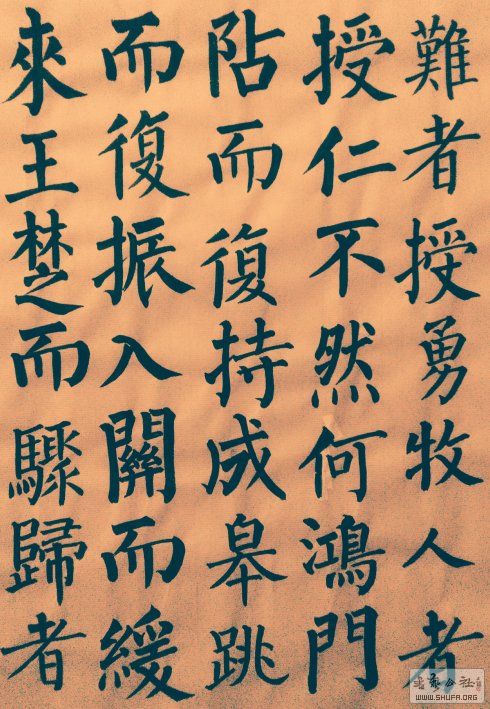 難者授勇牧人者
授仁不然何鴻門
阽而復持成皋跳
而復振入關而緩
來王楚而驟歸者
書藝公社
WWW.SHUFA.ORG